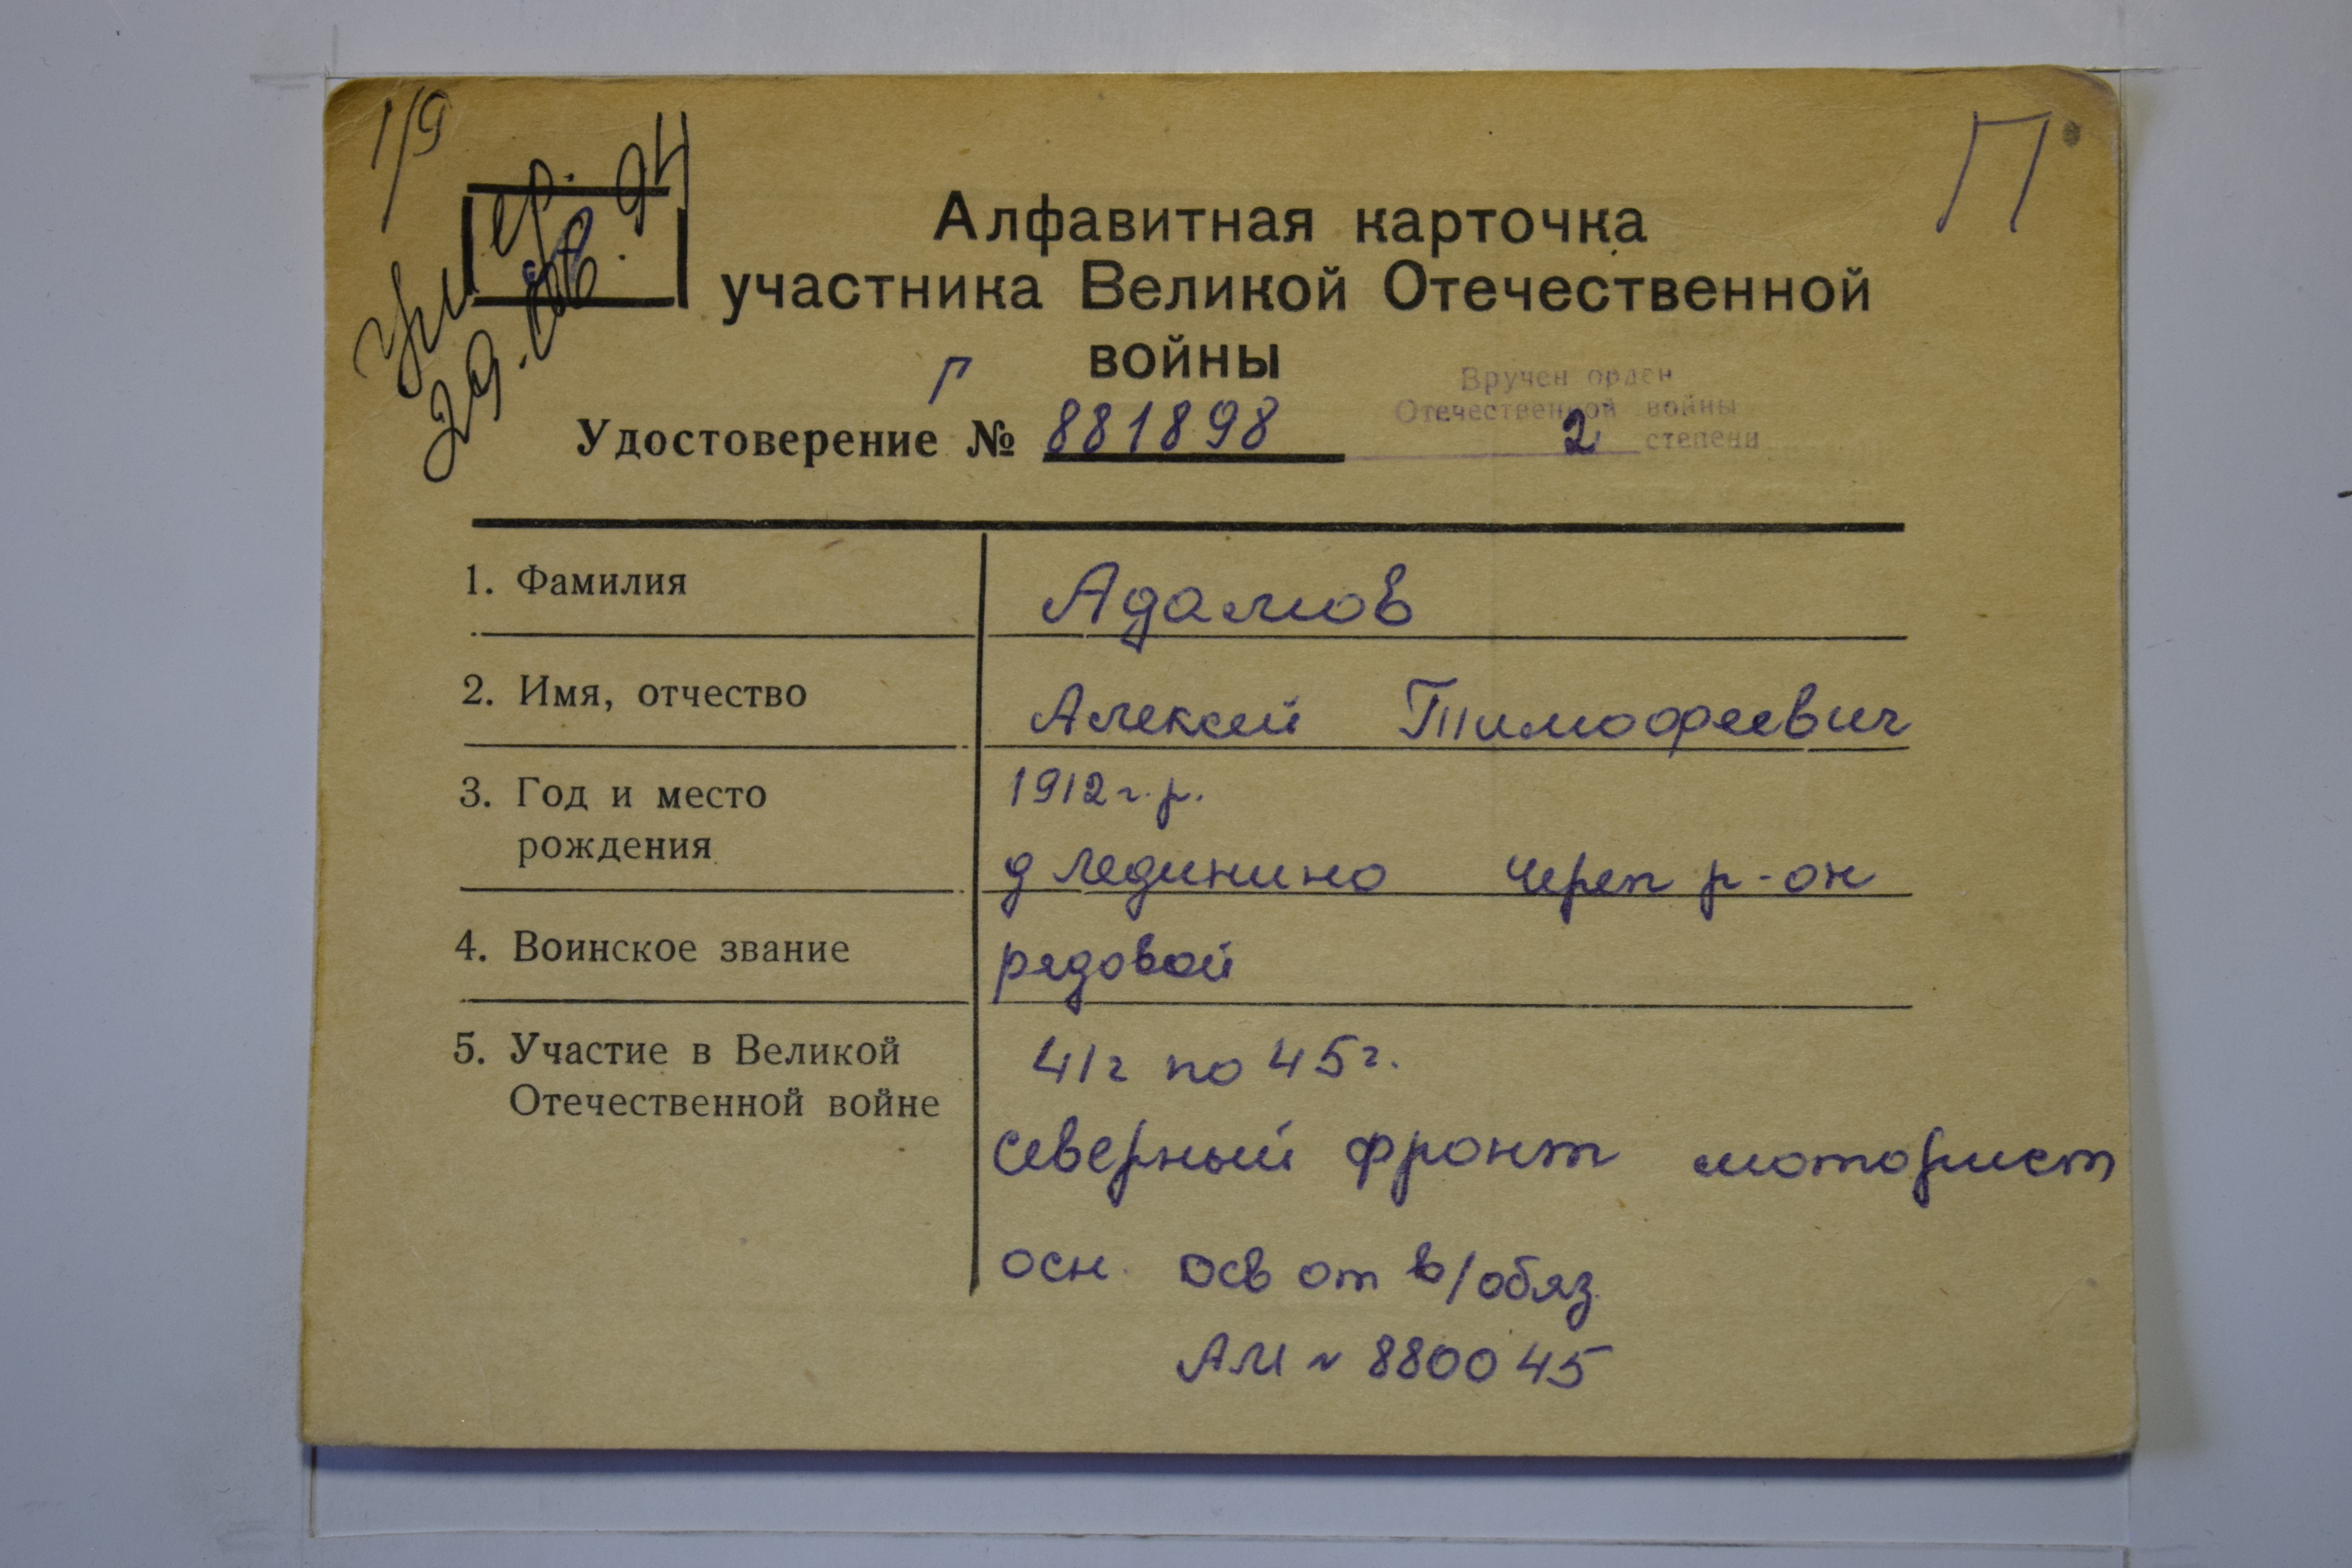 1/9
П
умер.
29. 08. 94
Алфавитная карточка
участника Великой Отечественной
войны
Вручен орден
Отечественной войны
2 степени
Г
Удостоверение № 881898
1. Фамилия Адамов
2. Имя, отчество Алексей Тимофеевич
3. Год и место 1912 г.р.
рождения д Лединино Череп р-он
4. Воинское звание рядовой
5. Участие в Великой 41г по 45г.
Отечественной войне Северный фронт моторист
осн. осв от в/обяз.
АМ N 880045